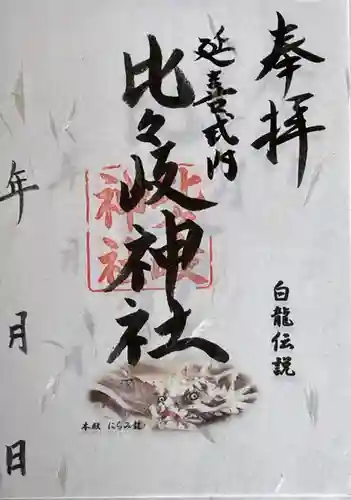 奉拝
白龍伝説
延喜式内
比々岐神社
本殿 にらみ龍
年 月 日